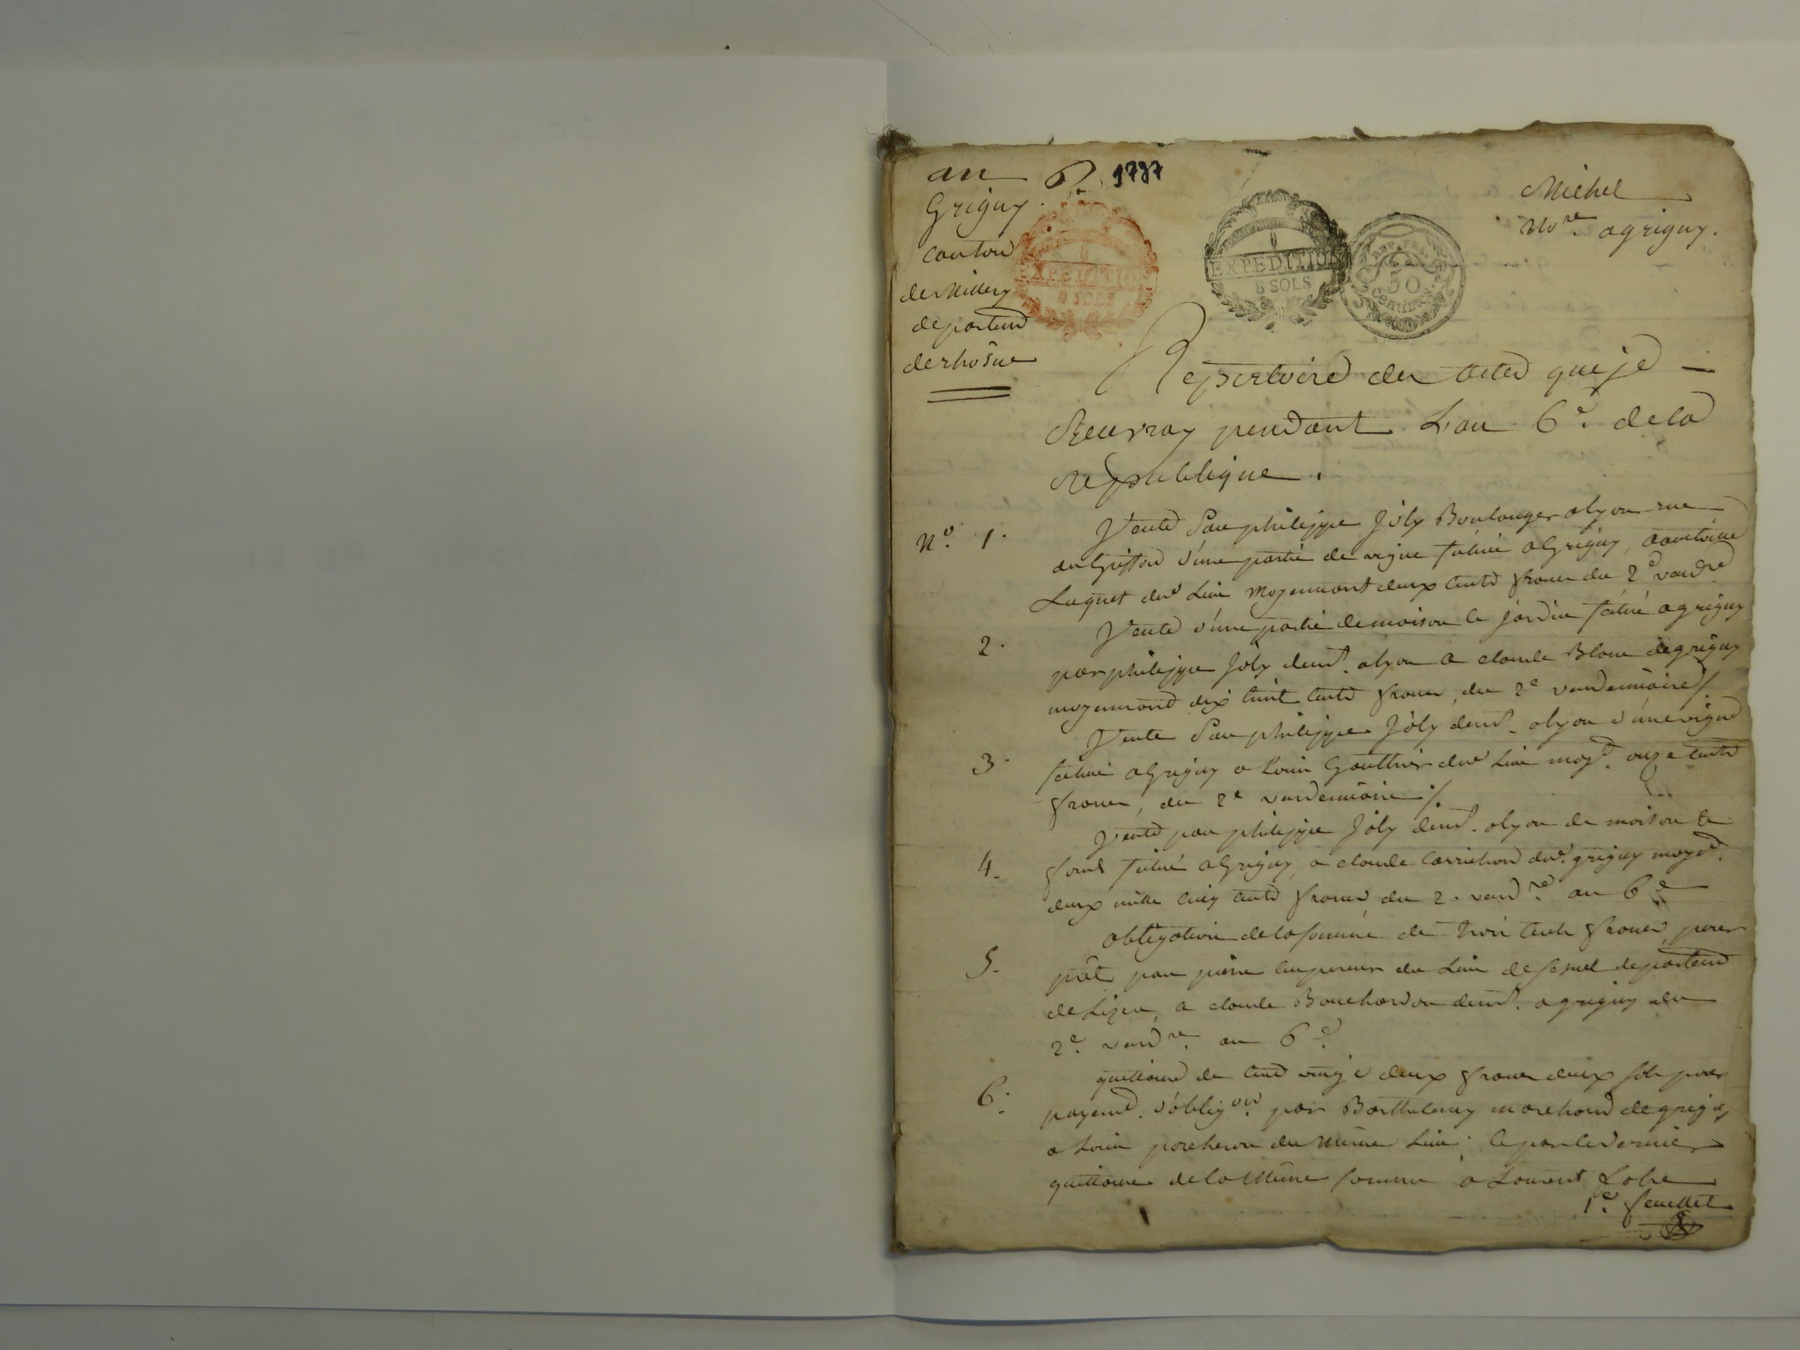 an 6e. 1797
Grigny
canton
de Millery
departemt
de rhosne
EXPEDITION
8 SOLS
EXPEDITION
8 SOLS
50
Centimes
Michel
Nore. a grigny.
Repertoire des actes que je
Recevray pendant L'an 6e. de la
republique.
No. 1. Vente par philippe Joly Boulanger a lyon rue
du Griffon d'une partie de vigne situé a Grigny, a antoine
Luquet dud Lieu moyennant deux cents francs du 2e vendre
2. Vente d'une partie de maison & jardin situé a grigny
par philippe Joly demt. a lyon a claude Blanc de grigny
moyennant dix huit cents francs, du 2e vendemiaire /.
3. Vente par philippe Joly demt. a lyon d'une vigne
situé a Grigny a Louis Gauthier dud Lieu moyt. onze cents
francs, du 2e vendemiaire /.
4. Vente par philippe Joly demt. a lyon de maison &
fonds situé a Grigny, a claude dud. grigny moyt.
deux mille cinq cents francs du 2. vendre an 6e
5. obligation de la somme de trois cents francs, pour
prêt par pierre du Lieu de departemt
de Lizer, a claude Bouchardon demt. a grigny du
2e. vendre. an 6e
6. quittance de cent vingt deux francs deux sols pour
payemt. d'obligon par Barthelemy marchand de grigny
a Louis porcheron du même Lieu; & par le dernier
quittance de la même somme a Laurent
1e. feuillet